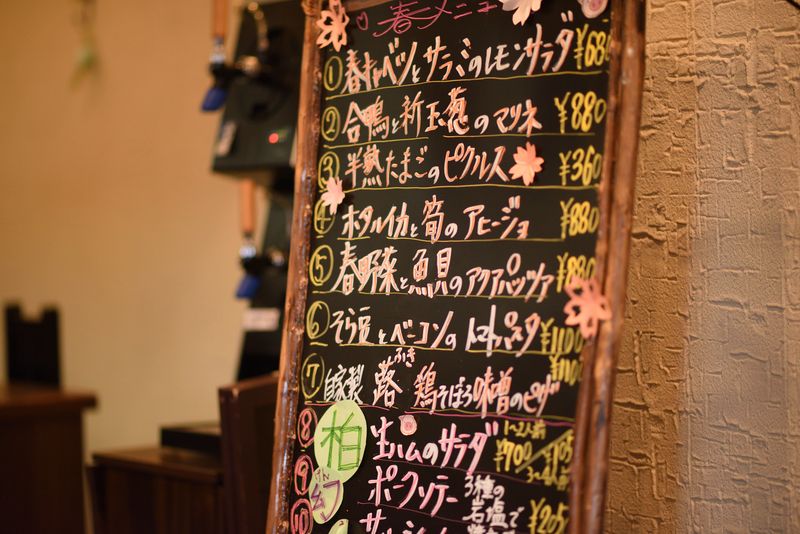 春メニュー
① 春キャベツとサラミのレモンサラダ ¥680
② 合鴨と新玉葱のマリネ ¥880
③ 半熟たまごのピクルス ¥360
④ ホタルイカと筍のアヒージョ ¥880
⑤ 春野菜と魚貝のアクアパッツァ ¥880
⑥ そら豆とベーコンのトマトパスタ ¥1100
⑦ 自家製 蕗 ふき 鶏そぼろ味噌のピザ ¥1100
⑧ 柏 生ハムのサラダ 1~2人前 ¥700
3~4人前
⑨ 幻 ポークソテー 3種の岩塩で
⑩